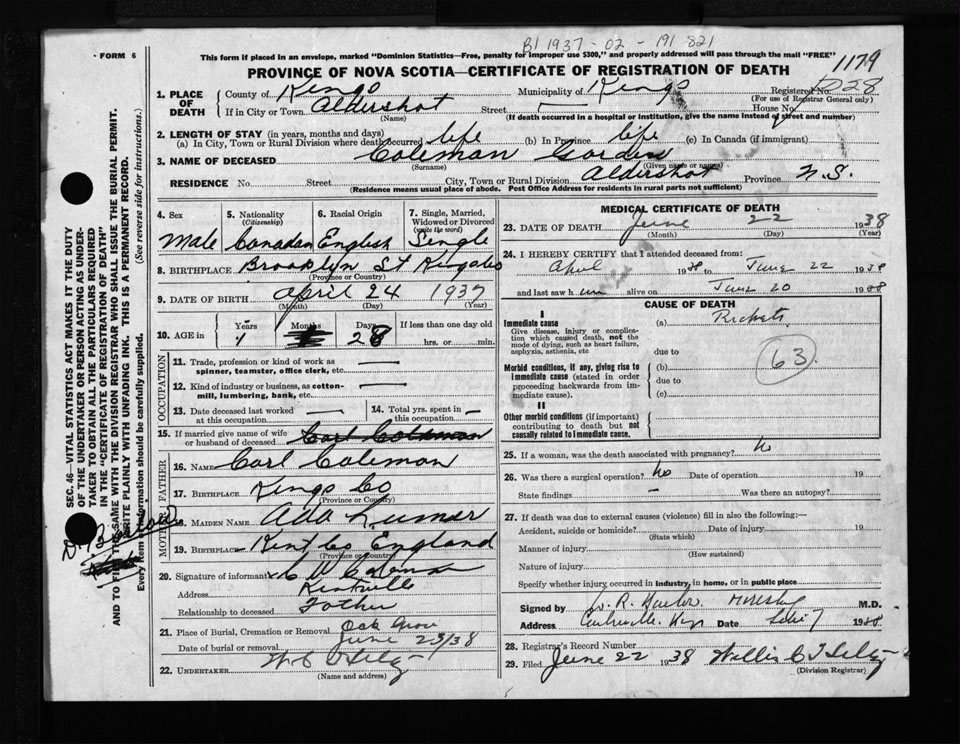 B1 1937-02-191821
FORM 6
This form if placed in an envelope, marked "Dominion Statistics—Free, penalty for improper use $300," and properly addressed will pass through the mail "FREE"
1179
PROVINCE OF NOVA SCOTIA—CERTIFICATE OF REGISTRATION OF DEATH
1. PLACE OF DEATH
County of Kings Municipality of Kings Registered No. 228
(For use of Registrar General only)
If in City or Town Aldershot Street — House No.
(Name) (If death occurred in a hospital or institution, give the name instead of street and number)
2. LENGTH OF STAY (in years, months and days)
(a) In City, Town or Rural Division where death occurred life (b) In Province life (c) In Canada (if immigrant)
3. NAME OF DECEASED Coleman Gorden
(Surname) (Given name or names)
RESIDENCE No. Street City, Town or Rural Division Aldershot Province N.S.
(Residence means usual place of abode. Post Office Address for residents in rural parts not sufficient)
4. Sex Male
5. Nationality (Citizenship) Canadian
6. Racial Origin English
7. Single, Married, Widowed or Divorced (write the word) Single
8. BIRTHPLACE Brooklyn St Kings Co
(Province or Country)
9. DATE OF BIRTH April 24 1937
(Month) (Day) (Year)
10. AGE in Years 1 Months Days 28 If less than one day old hrs. or min.
OCCUPATION
11. Trade, profession or kind of work as spinner, teamster, office clerk, etc. —
12. Kind of industry or business, as cotton-mill, lumbering, bank, etc. —
13. Date deceased last worked at this occupation —
14. Total yrs. spent in this occupation —
15. If married give name of wife or husband of deceased Carl Coleman
FATHER
16. NAME Carl Coleman
17. BIRTHPLACE Kings Co
(Province or Country)
MOTHER
18. MAIDEN NAME Ada
19. BIRTHPLACE Kent Co England
(Province or Country)
20. Signature of informant
Address Kentville
Relationship to deceased Father
21. Place of Burial, Cremation or Removal Oak Grove
Date of burial or removal June 23/38
22. UNDERTAKER
(Name and address)
MEDICAL CERTIFICATE OF DEATH
23. DATE OF DEATH June 22 1938
(Month) (Day) (Year)
24. I HEREBY CERTIFY that I attended deceased from:
April 1938 to June 22 1938
and last saw him alive on June 20 1938
CAUSE OF DEATH
I
Immediate cause
Give disease, injury or complication which caused death, not the mode of dying, such as heart failure, asphyxia, asthenia, etc
(a) Rickets
due to
Morbid conditions, if any, giving rise to immediate cause (stated in order proceeding backwards from immediate cause).
(b)
due to
(c)
63
II
Other morbid conditions (if important) contributing to death but not causally related to immediate cause.
25. If a woman, was the death associated with pregnancy? no
26. Was there a surgical operation? no Date of operation 19
State findings — Was there an autopsy?
27. If death was due to external causes (violence) fill in also the following:—
Accident, suicide or homicide? Date of injury 19
(State which)
Manner of injury
(How sustained)
Nature of injury
Specify whether injury occurred in industry, in home, or in public place
Signed by M.D.
Address Centreville, Kings Date 1938
28. Registrar's Record Number
29. Filed June 22 1938
(Division Registrar)
SEC. 46—VITAL STATISTICS ACT MAKES IT THE DUTY OF THE UNDERTAKER OR PERSON ACTING AS UNDERTAKER TO OBTAIN ALL THE PARTICULARS REQUIRED IN THE "CERTIFICATE OF REGISTRATION OF DEATH" AND TO FILE THE SAME WITH THE DIVISION REGISTRAR WHO SHALL ISSUE THE BURIAL PERMIT.
WRITE PLAINLY WITH UNFADING INK. THIS IS A PERMANENT RECORD.
Every item of information should be carefully supplied. (See reverse side for instructions.)